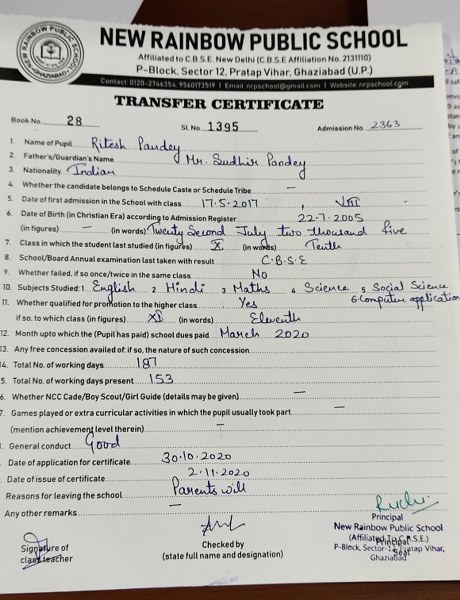 RAINBOW PUBLIC SCHOOL
GHAZIABAD
NEW RAINBOW PUBLIC SCHOOL
Affiliated to C.B.S.E. New Delhi (C.B.S.E Affiliation No. 2131110)
P-Block, Sector 12, Pratap Vihar, Ghaziabad (U.P.)
Contact: 0120-2744354, 9540173519 | Email: nrpschool@gmail.com | Website: nrpschool.com
TRANSFER CERTIFICATE
Book No. 28 Sl. No. 1395 Admission No. 2363
1. Name of Pupil Ritesh Pandey
2. Father's/Guardian's Name Mr. Sudhir Pandey
3. Nationality Indian
4. Whether the candidate belongs to Schedule Caste or Schedule Tribe —
5. Date of first admission in the School with class 17-5-2017, VIII
6. Date of Birth (in Christian Era) according to Admission Register 22-7-2005
(in figures) — (in words) Twenty Second July two thousand five
7. Class in which the student last studied (in figures) X (in words) Tenth
8. School/Board Annual examination last taken with result C.B.S.E
9. Whether failed, if so once/twice in the same class No
10. Subjects Studied: 1 English 2 Hindi 3 Maths 4 Science 5 Social Science
6 Computer application
11. Whether qualified for promotion to the higher class Yes
if so, to which class (in figures) XI (in words) Eleventh
12. Month upto which the (Pupil has paid) school dues paid March 2020
13. Any free concession availed of: if so, the nature of such concession
4. Total No. of working days 187
5. Total No. of working days present 153
6. Whether NCC Cade/Boy Scout/Girl Guide (details may be given) —
7. Games played or extra curricular activities in which the pupil usually took part
(mention achievement level therein) —
General conduct Good
Date of application for certificate 30-10-2020
Date of issue of certificate 2-11-2020
Reasons for leaving the school Parents will
Any other remarks —
Signature of
class teacher
Checked by
(state full name and designation)
Principal
New Rainbow Public School
(Affiliated To C.B.S.E.)
P-Block, Sector-12, Pratap Vihar,
Ghaziabad
Principal
Seal